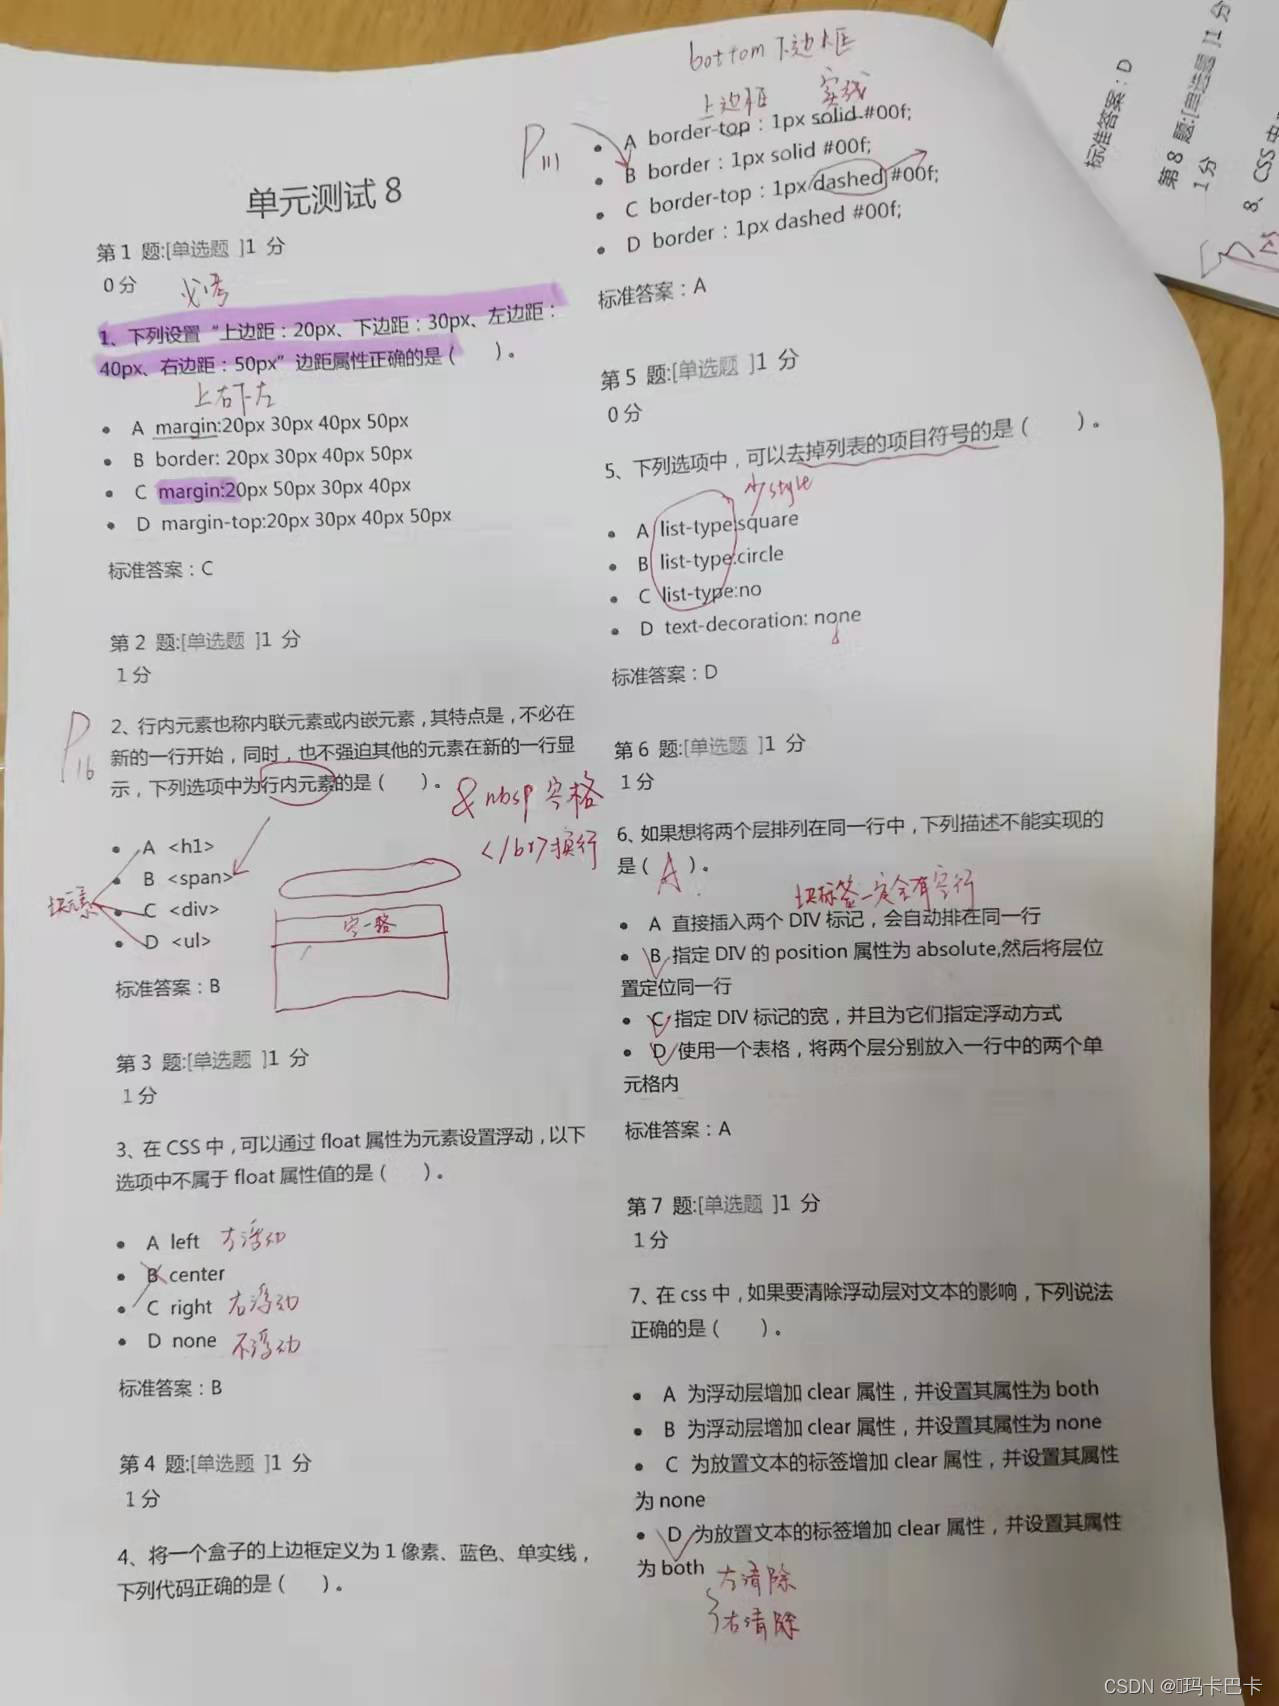 单元测试 8
第 1 题:[单选题 ]1 分
0 分
必考
1、下列设置“上边距：20px、下边距：30px、左边距：
40px、右边距：50px”边距属性正确的是（ ）。
上右下左
A margin:20px 30px 40px 50px
B border: 20px 30px 40px 50px
C margin:20px 50px 30px 40px
D margin-top:20px 30px 40px 50px
标准答案：C
第 2 题:[单选题 ]1 分
1 分
P16
2、行内元素也称内联元素或内嵌元素，其特点是，不必在
新的一行开始，同时，也不强迫其他的元素在新的一行显
示，下列选项中为行内元素的是（ ）。
&nbsp 空格
</br>换行
A <h1>
B <span>
块元素
C <div>
D <ul>
空一格
标准答案：B
第 3 题:[单选题 ]1 分
1 分
3、在 CSS 中，可以通过 float 属性为元素设置浮动，以下
选项中不属于 float 属性值的是（ ）。
A left 左浮动
B center
C right 右浮动
D none 不浮动
标准答案：B
第 4 题:[单选题 ]1 分
1 分
4、将一个盒子的上边框定义为 1 像素、蓝色、单实线，
下列代码正确的是（ ）。
bottom 下边框
上边框 实线
P111
A border-top：1px solid #00f;
B border：1px solid #00f;
C border-top：1px dashed #00f;
D border：1px dashed #00f;
标准答案：A
第 5 题:[单选题 ]1 分
0 分
5、下列选项中，可以去掉列表的项目符号的是（ ）。
少style
A list-type:square
B list-type:circle
C list-type:no
D text-decoration: none
标准答案：D
第 6 题:[单选题 ]1 分
1 分
6、如果想将两个层排列在同一行中，下列描述不能实现的
是（ A ）。
块标签一定会有空行
A 直接插入两个 DIV 标记，会自动排在同一行
B 指定 DIV 的 position 属性为 absolute,然后将层位
置定位同一行
C 指定 DIV 标记的宽，并且为它们指定浮动方式
D 使用一个表格，将两个层分别放入一行中的两个单
元格内
标准答案：A
第 7 题:[单选题 ]1 分
1 分
7、在 css 中，如果要清除浮动层对文本的影响，下列说法
正确的是（ ）。
A 为浮动层增加 clear 属性，并设置其属性为 both
B 为浮动层增加 clear 属性，并设置其属性为 none
C 为放置文本的标签增加 clear 属性，并设置其属性
为 none
D 为放置文本的标签增加 clear 属性，并设置其属性
为 both
左清除
右清除
标准答案：D
第 8 题:[单选题 ]1 分
1 分
8、CSS
CSDN @玛卡巴卡